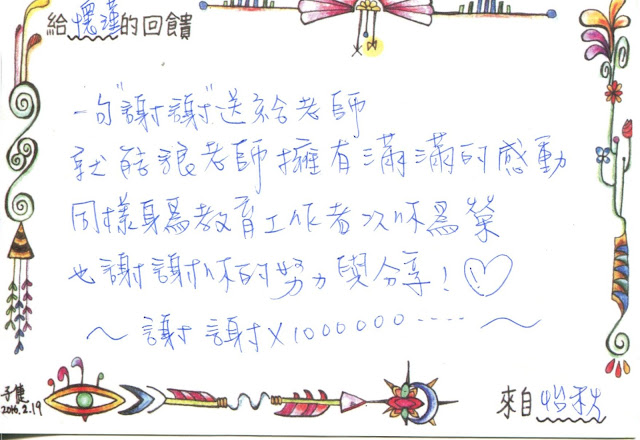 給懷瑾的回饋
一句"謝謝"送給老師
就能讓老師擁有滿滿的感動
同樣身為教育工作者以你為榮
也謝謝你的努力與分享！♡
～謝謝X1000000‧‧‧‧～
子健
2016.2.19
來自怡秋